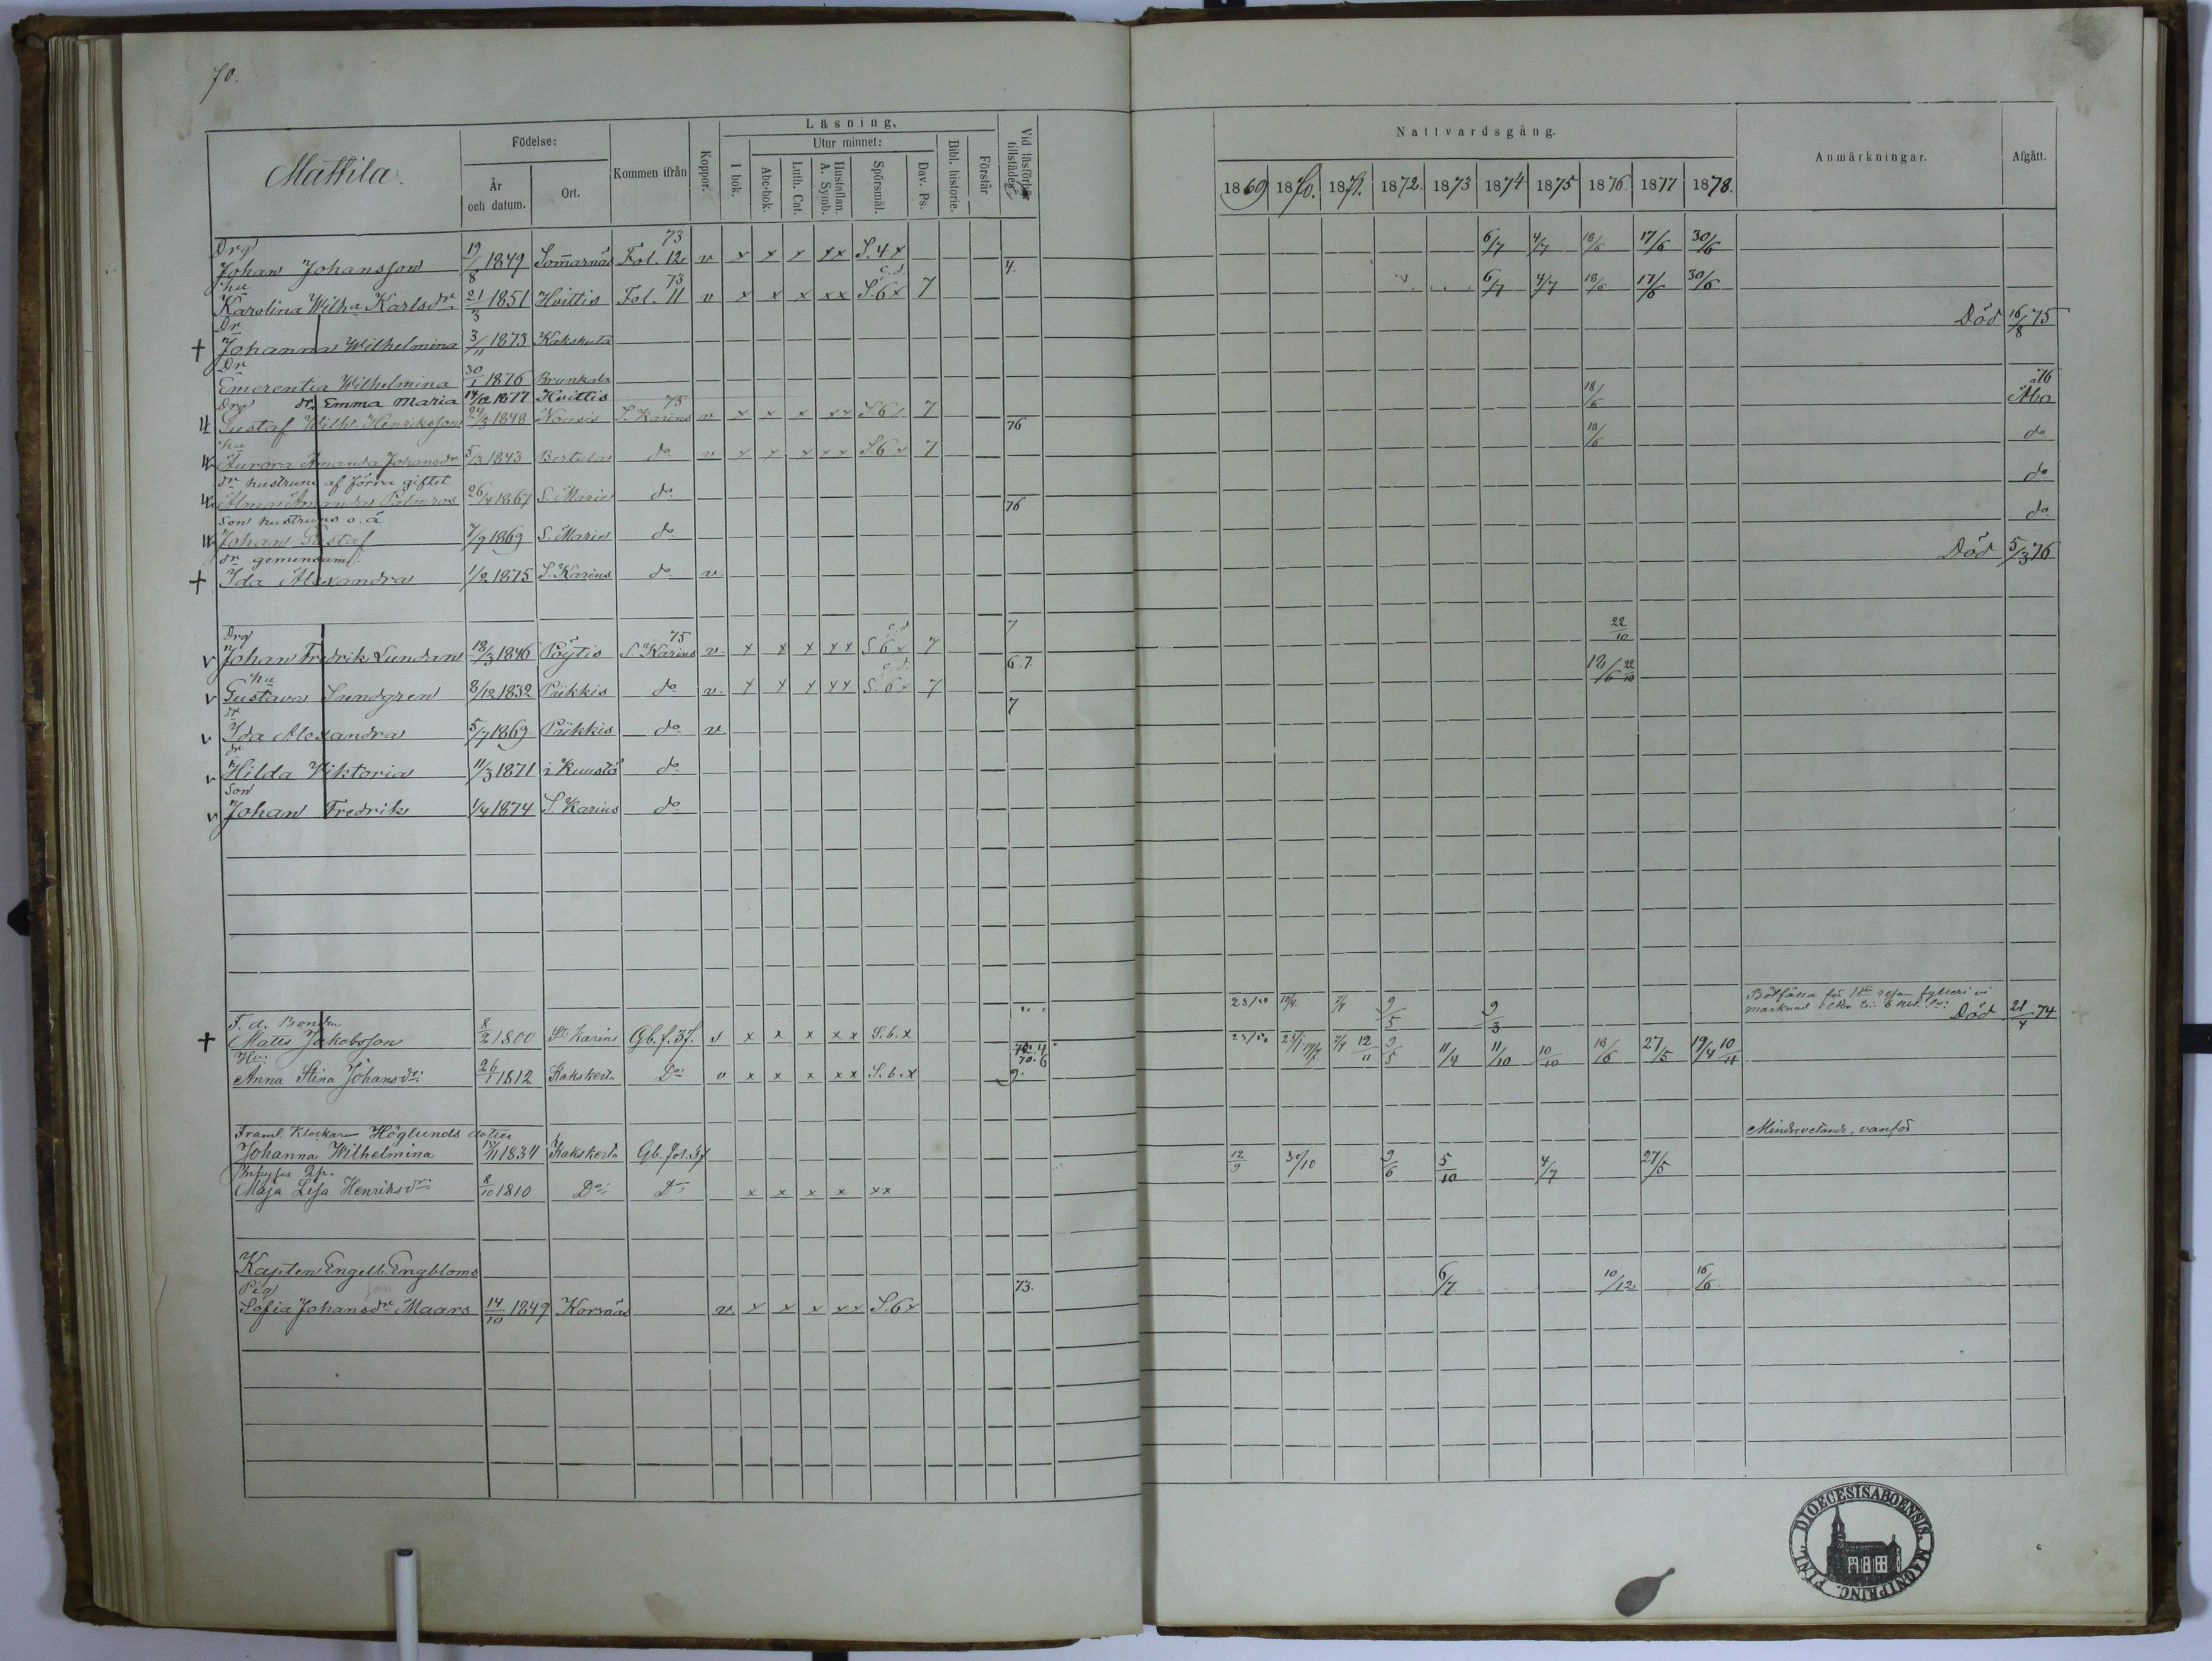 70.
Mattila.
Födelse:
År och datum.
Ort.
Kommen ifrån
Koppor.
Läsning.
I bok.
Utur minnet:
Abc-bok.
Luth. Cat.
Hustaflan. A. Symb.
Spörsmål.
Dav. Ps.
Bibl. historie.
Förstår
Vid läsförhör tillstädes
Nattvardsgång.
1869 1870. 1871. 1872. 1873 1874 1875 1876. 1877 1878.
Anmärkningar.
Afgått.
Drg 73
Johan Johansson 19/8 1849 Somarnäs Fol. 12 v x x x xx S. 4 x 4. 6/7 4/7 18/6 17/6 30/6
hu 73 c.d.
Karolina Wilh:a Karlsdr 21/3 1851 Hvittis Fol. 11 v x x x xx S. 6 x 7 6/7 4/7 18/6 17/6 30/6
Dr
† Johanna Wilhelmina 3/11 1873 Kakskerta Död 16/8 75
Dr
Emerentia Wilhelmina 30/1 1876 Brunkala
dr. Emma Maria 14/12 1877 Hvittis
Drg 75
Gustaf Wilh. Henriksson 24/3 1848 Nousis S. Karins v x x x xx S. 6 x 7 76 18/6 76 Åbo
hu
Aurora Amanda Johansdr 5/3 1843 Bertula do v x x x xx S. 6 x 7 18/6 do
dr hustruns af förra giftet
Alma Amanda Palmros 26/4 1867 S. Marie do 76 do
Son hustruns o. ä
Johan Gustaf 7/9 1869 S. Marie do do
dr gemensam
† Ida Alexandra 1/2 1875 S. Karins do v. Död 5/3 76
Drg 75 c.d.
v Johan Fredrik Lundén 13/3 1846 Pöytis S. Karins v. x x x xx S. 6 x 7 7 22/10
hu c.d.
v Gustava Sundgren 8/12 1832 Piikkis do v. x x x xx S. 6 x 7 6.7. 12/6 22/10
dr
v Ida Alexandra 5/7 1869 Piikkis do v 7
dr
v Hilda Viktoria 11/3 1871 i Kuustö do
Son
v Johan Fredrik 1/4 1874 S. Karins do
F. d. Bonden
† Matts Jakobsson 8/2 1800 St. Karins Gb. f. 37. s x x x x x S. 6. x 9/5 9/3 Död 21/4 74
Hu:
Anna Stina Johansdr: 26/1 1812 Kakskerta Do: v x x x x x S. 6. x 12/11 9/5 11/4 11/10 10/10 18/6 27/5 19/4 10/11
Framl. Klockare Höglunds dotter
Johanna Wilhelmina 1834 Kakskerta Gb. fol. 37 Mindrevetande, vanför
Maja Lisa Henriksdr: 8/10 1810 Do: Do: x x x x xx 12/9 30/10 9/6 5/10 4/7 27/5
Kapten Engelb. Engbloms
Pig
Sofia Johansdr Maars 14/10 1849 Korsnäs v x x x xx S. 6 x 73. 6/7 10/12 16/6
DIOECESIS ABOENSIS. MAGNI PRINC. FINL.